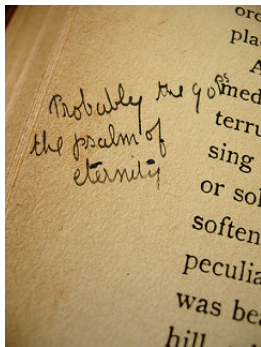 Probably the
the psalm of
eternity
pla
A
med
terru
sing
or sol
soften
peculia
was bea
hill